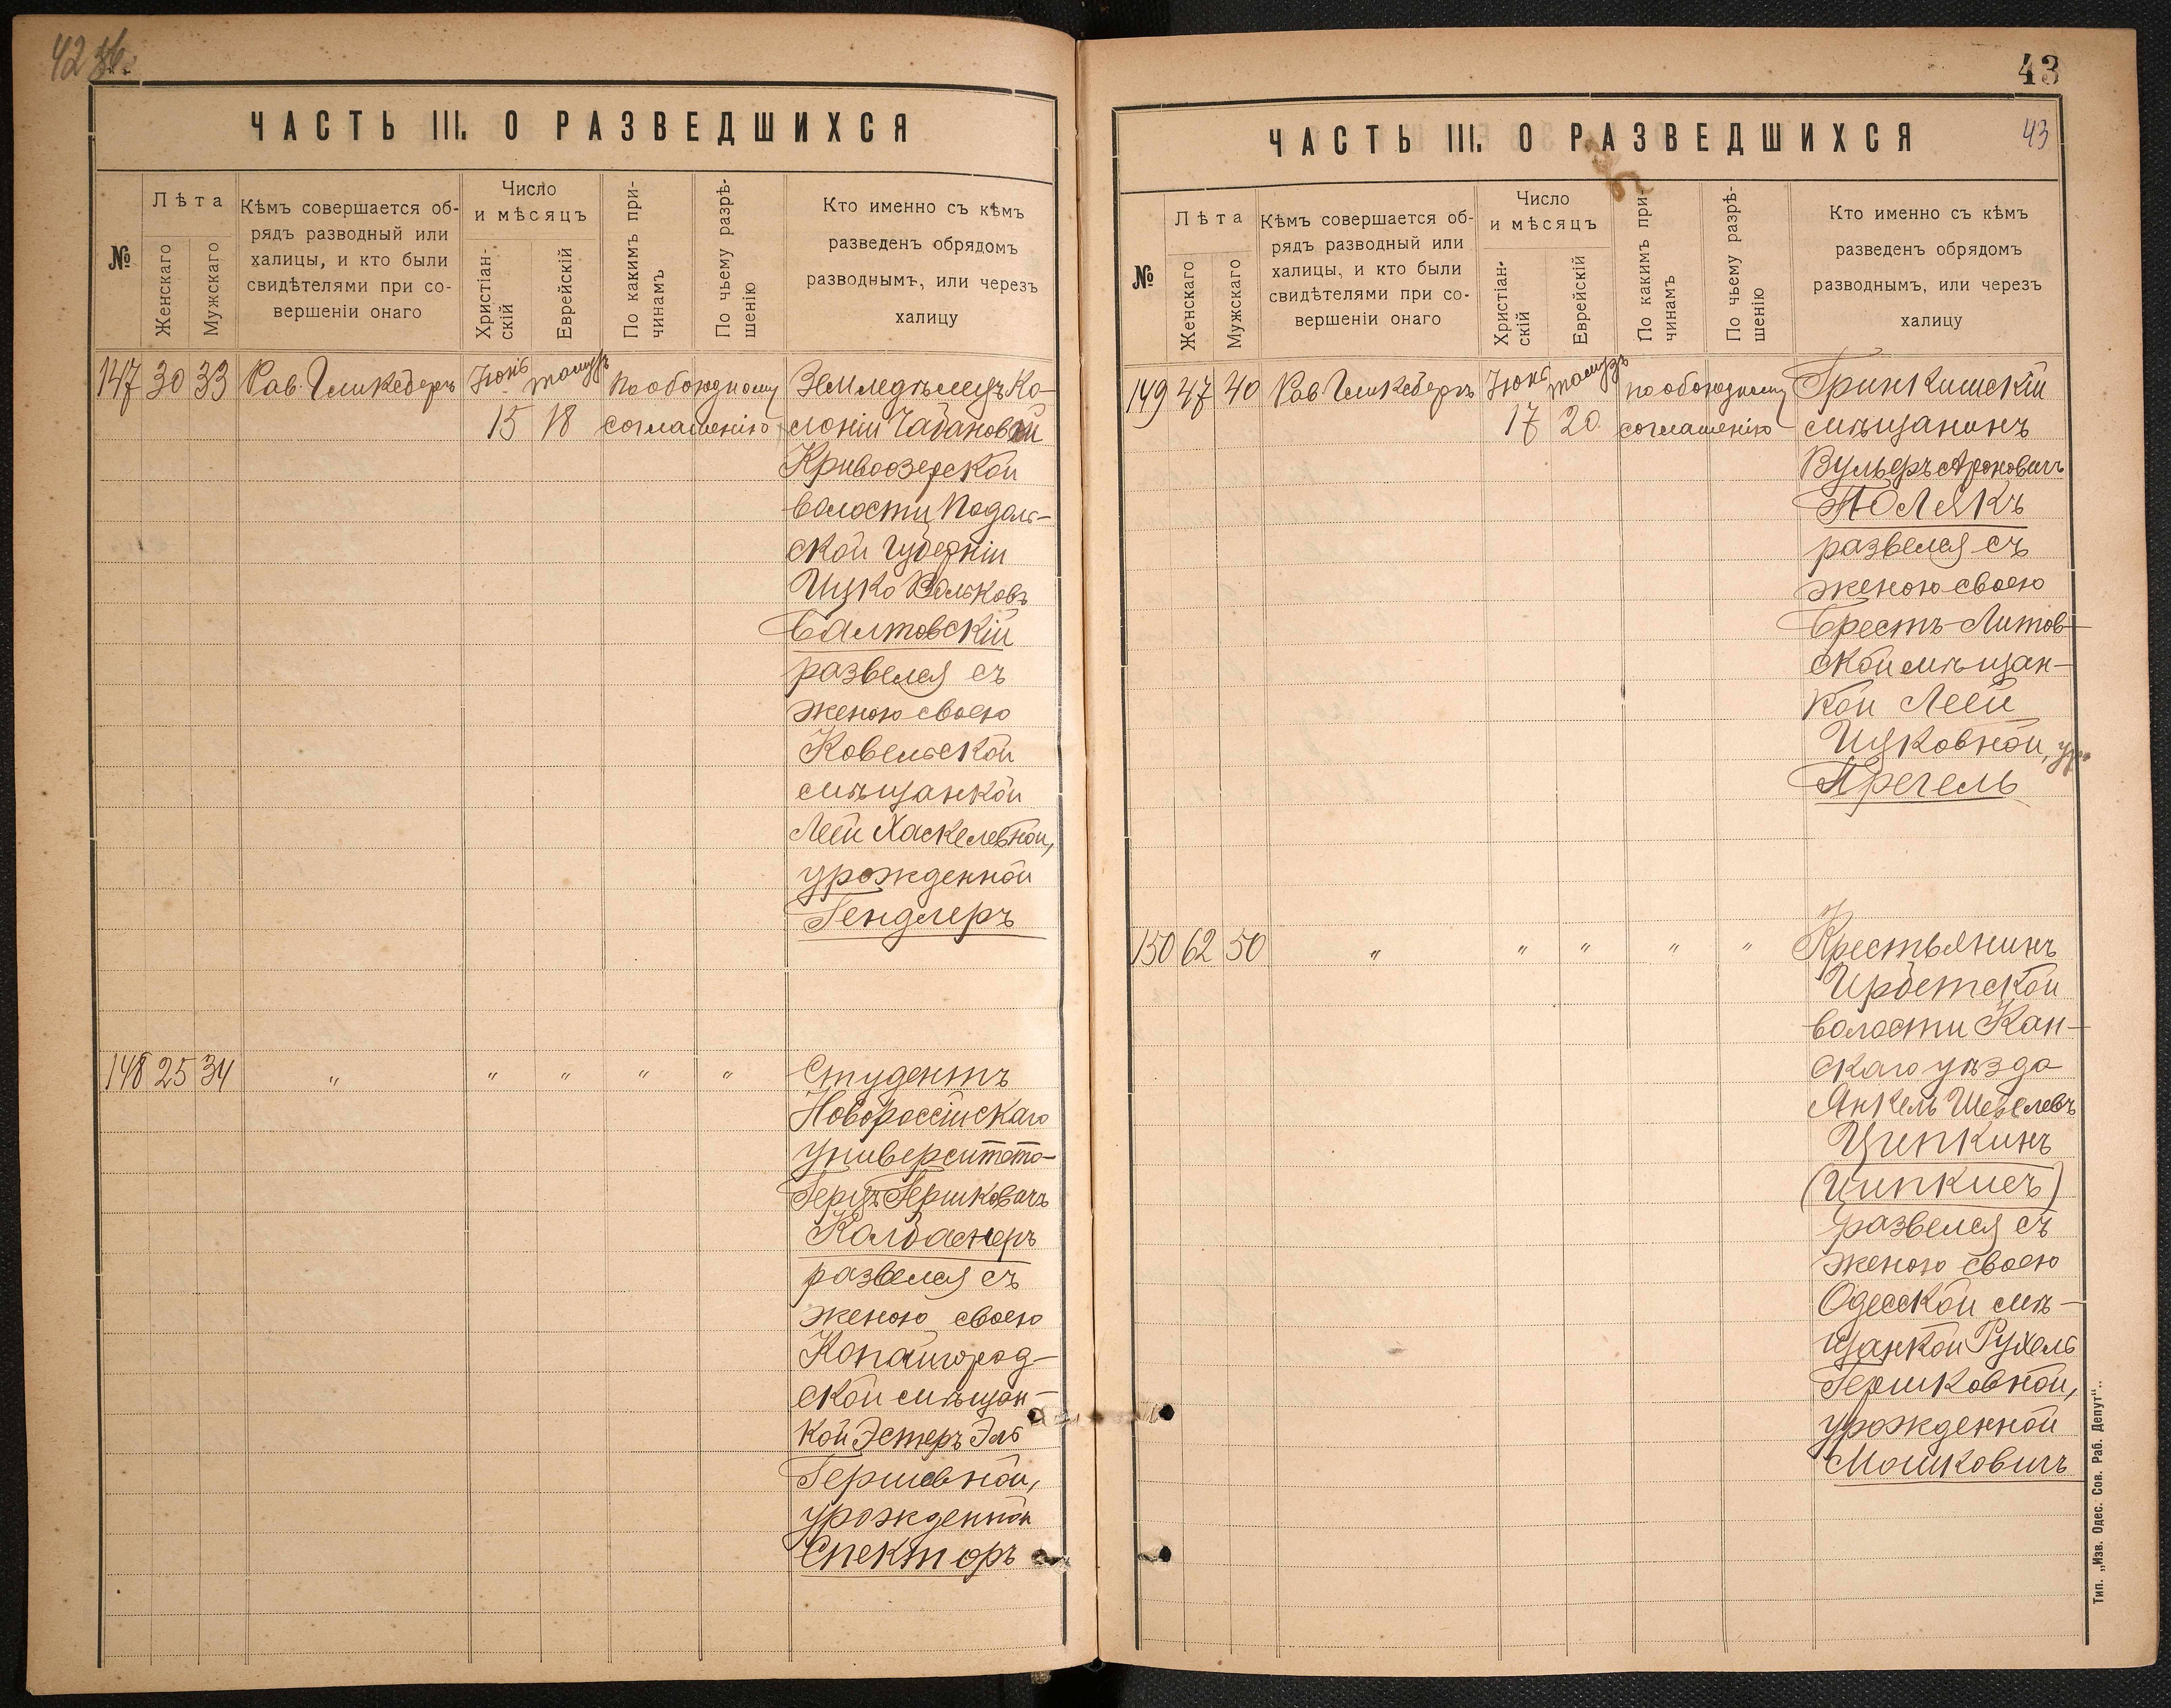 42 зв.
ЧАСТЬ III. О РАЗВЕДШИХСЯ
№
Лѣта
Женскаго
Мужскаго
Кѣмъ совершается об-
рядъ разводный или
халицы, и кто были
свидѣтелями при со-
вершеніи онаго
Число
и мѣсяцъ
Христіан-
скій
Еврейскій
По какимъ при-
чинамъ
По чьему разрѣ-
шенію
Кто именно съ кѣмъ
разведенъ обрядомъ
разводнымъ, или черезъ
халицу
147 30 33 Рав. Гликсбергъ Іюнь тамузъ По обоюдному Земледѣлецъ Ко-
15 18 соглашенію лоніи Чабановой
Кривоозерской
волости Подоль-
ской Губерніи
Ицко Вольковъ
Балтовскій
развелся съ
женою своею
Ковельской
мѣщанкой
Леей Хаскелевной,
урожденной
Гендлеръ
148 25 34 " " " " " Студентъ
Новороссійскаго
Университета
Герцъ Гершковичъ
Колбаснеръ
развелся съ
женою своею
Копайгород-
ской мѣщан-
кой Эстеръ Эль
Гершевной,
урожденной
Спекторъ
43
ЧАСТЬ III. О РАЗВЕДШИХСЯ
43
№
Лѣта
Женскаго
Мужскаго
Кѣмъ совершается об-
рядъ разводный или
халицы, и кто были
свидѣтелями при со-
вершеніи онаго
Число
и мѣсяцъ
Христіан-
скій
Еврейскій
По какимъ при-
чинамъ
По чьему разрѣ-
шенію
Кто именно съ кѣмъ
разведенъ обрядомъ
разводнымъ, или черезъ
халицу
149 47 40 Рав. Гликсбергъ Іюнь тамузъ по обоюдному Гринкишскій
17 20 соглашенію мѣщанинъ
Вульфъ Ароновичъ
ПОЛЯКЪ
развелся съ
женою своею
Брестъ-Литов-
ской мѣщан-
кой Леей
Ицковной, ур.
Прегель
150 62 50 " " " " " Крестьянинъ
Ирбетской
волости Кан-
скаго уѣзда
Янкель Шевелевъ
Ципкинъ
(Ципкисъ)
развелся съ
женою своею
Одесской мѣ-
щанкой Рухель
Гершковной,
урожденной
Мошковичъ
Тип. „Изв. Одес. Сов. Раб. Депут“..